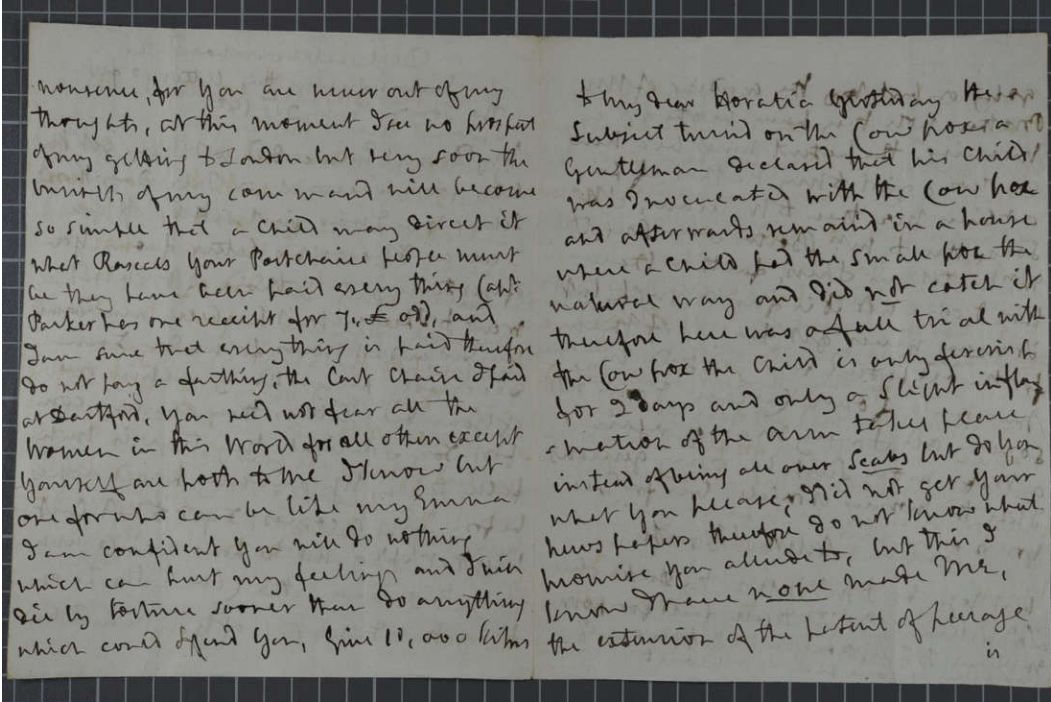 nonsense, for you are never out of my
thoughts, at this moment I see no prospect
of my getting to London but very soon the
business of my command will become
so simple that a Child may direct it
what Rascals your Postchaise people must
be they have been paid every thing Capt:
Parker has one receipt for 7,,£ odd, and
I am sure that every thing is paid therefore
do not pay a farthing, the Cart Chaise I paid
at Dartford, you need not fear all the
Women in this World for all others except
yourself are poth to me I know but
one for who can be like my Emma
I am confident you will do nothing
which can hurt my feelings and I will
die by torture sooner than do any thing
which could offend you, Give 10,000 kisses
to my dear Horatia Yesterday the
Subject turn'd on the Cow pox a
Gentleman declared that his Child
was Inoculated with the Cow pox
and afterwards remain'd in a house
where a Child had the Small pox the
natural way and did not catch it
therefore here was a full trial with
the Cow pox the Child is only feverish
for 2 days and only a slight infla
-mation of the arm takes place
instead of being all over Scabs but do you
what you please, I did not get your
newspapers therefore do not know what
promise you allude to, but this I
know I have none made Me,
the extension of the Patent of peerage
is